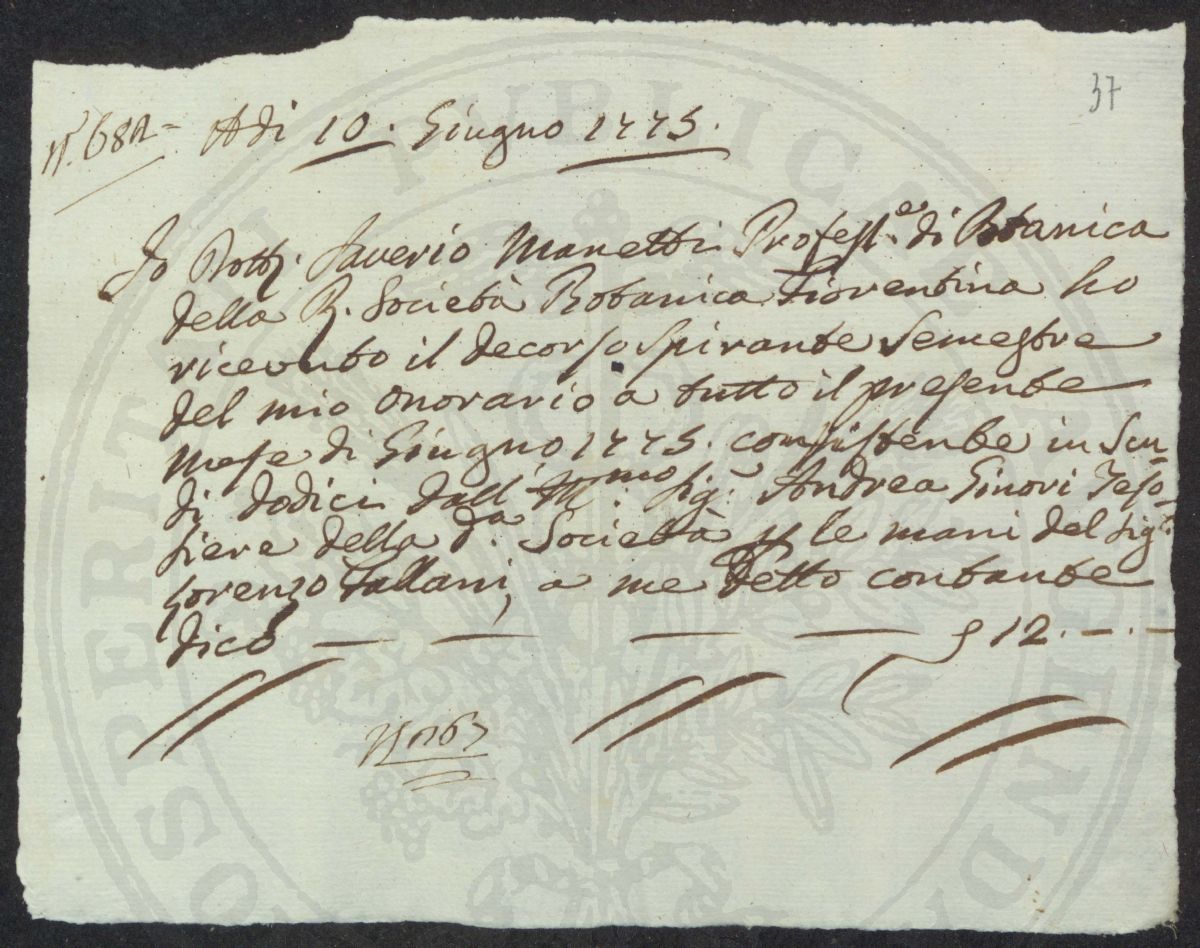 37
N. 682 = Adi 10. Giugno 1775.
Io Dott. Saverio Manetti Profess.re di Botanica
della R. Società Botanica Fiorentina ho
ricevuto il decorso spirante Semestre
del mio Onorario a tutto il presente
Mese di Giugno 1775. consistente in Scu-
di dodici dall' Ill.mo Sig. Andrea Ginori Teso-
riere della d.a Società p le mani del Sig.
Lorenzo Tallani, a me detto contante
dico — — — — 12. — . —
PROSPERITATI PUBLICAE AUGENDAE